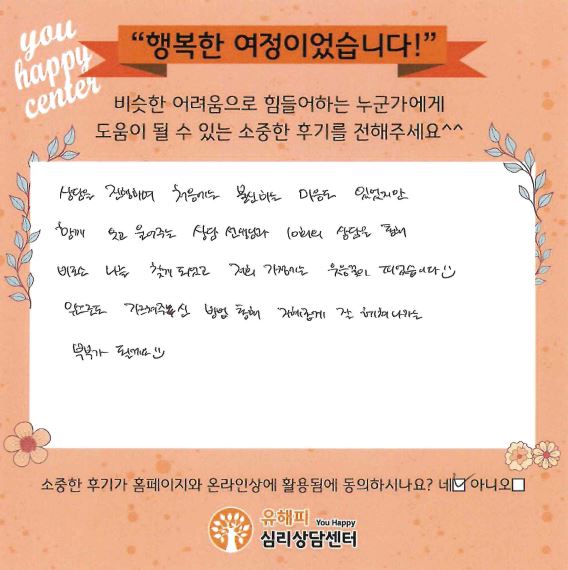 you
happy
center
“행복한 여정이었습니다!”
비슷한 어려움으로 힘들어하는 누군가에게
도움이 될 수 있는 소중한 후기를 전해주세요^^
상담을 진행하며 처음에는 불신하는 마음도 있었지만
함께 웃고 울어주는 상담 선생님과 10회의 상담을 통해
비로소 나를 찾게 되었고 저희 가정에는 웃음꽃이 피었습니다
앞으로도 가르쳐주신 방법 통해 지혜롭게 잘 헤쳐나가는
부부가 될게요
소중한 후기가 홈페이지와 온라인상에 활용됨에 동의하시나요? 네 아니오
유해피 You Happy
심리상담센터